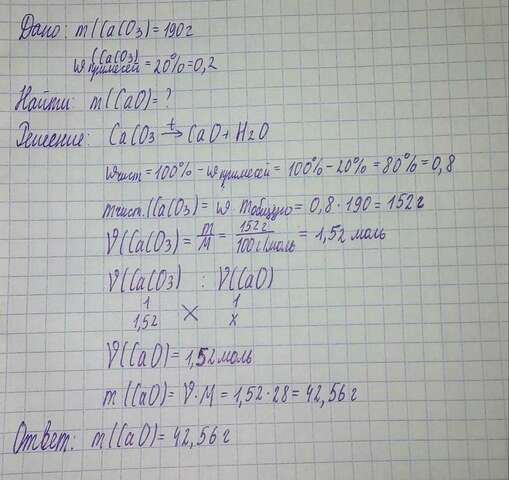 Дано: m(CaCO3) = 190г
(CaCO3)
w примесей = 20% = 0,2
Найти: m(CaO) = ?
Решение: CaCO3 t→ CaO + H2O
wчист = 100% - wпримесей = 100% - 20% = 80% = 0,8
mчист.(CaCO3) = w · mобщую = 0,8 · 190 = 152 г
ν(CaCO3) = m/M = 152г/100г/моль = 1,52 моль
ν(CaCO3) : ν(CaO)
1 1
1,52 x
ν(CaO) = 1,52 моль
m(CaO) = ν · M = 1,52 · 28 = 42,56 г
Ответ: m(CaO) = 42,56 г